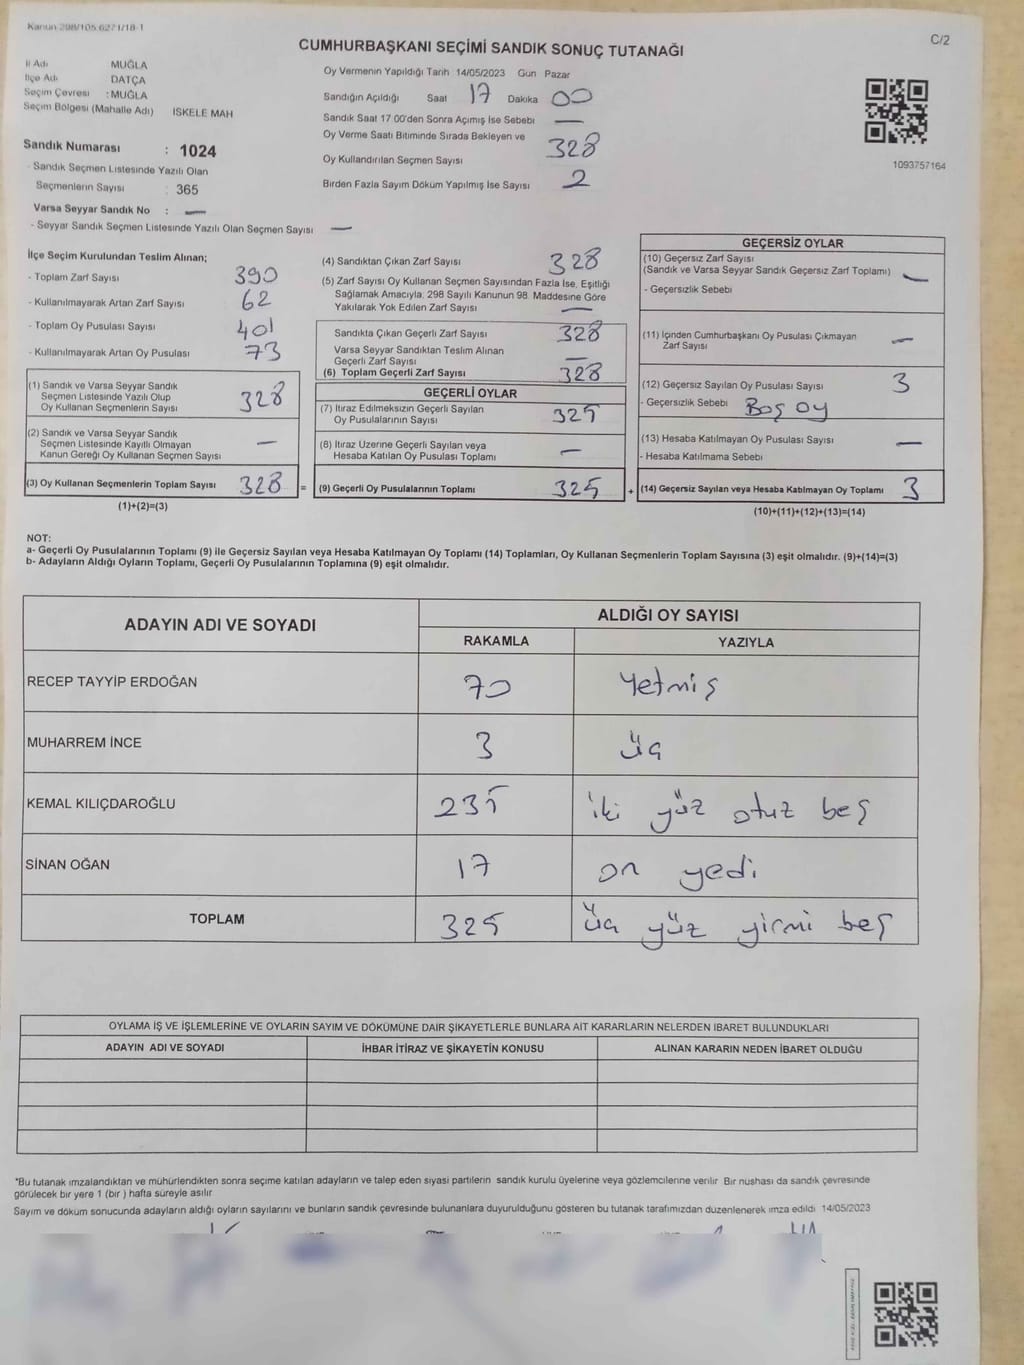 Kanun 298/105 6271/18-1
C/2
CUMHURBAŞKANI SEÇİMİ SANDIK SONUÇ TUTANAĞI
İl Adı MUĞLA
İlçe Adı DATÇA
Seçim Çevresi : MUĞLA
Seçim Bölgesi (Mahalle Adı) İSKELE MAH
Sandık Numarası : 1024
- Sandık Seçmen Listesinde Yazılı Olan
Seçmenlerin Sayısı : 365
Varsa Seyyar Sandık No : —
- Seyyar Sandık Seçmen Listesinde Yazılı Olan Seçmen Sayısı —
Oy Vermenin Yapıldığı Tarih 14/05/2023 Gün Pazar
Sandığın Açıldığı Saat 17 Dakika 00
Sandık Saat 17 00'den Sonra Açımış İse Sebebi —
Oy Verme Saati Bitiminde Sırada Bekleyen ve
Oy Kullandırılan Seçmen Sayısı 328
Birden Fazla Sayım Döküm Yapılmış İse Sayısı 2
1093757164
İlçe Seçim Kurulundan Teslim Alınan;
- Toplam Zarf Sayısı 390
- Kullanılmayarak Artan Zarf Sayısı 62
- Toplam Oy Pusulası Sayısı 401
- Kullanılmayarak Artan Oy Pusulası 73
(1) Sandık ve Varsa Seyyar Sandık
Seçmen Listesinde Yazılı Olup
Oy Kullanan Seçmenlerin Sayısı 328
(2) Sandık ve Varsa Seyyar Sandık
Seçmen Listesinde Kayıtlı Olmayan
Kanun Gereği Oy Kullanan Seçmen Sayısı —
(3) Oy Kullanan Seçmenlerin Toplam Sayısı 328 =
(1)+(2)=(3)
(4) Sandıktan Çıkan Zarf Sayısı 328
(5) Zarf Sayısı Oy Kullanan Seçmen Sayısından Fazla İse, Eşitliği
Sağlamak Amacıyla, 298 Sayılı Kanunun 98. Maddesine Göre
Yakılarak Yok Edilen Zarf Sayısı —
Sandıkta Çıkan Geçerli Zarf Sayısı 328
Varsa Seyyar Sandıktan Teslim Alınan
Geçerli Zarf Sayısı —
(6) Toplam Geçerli Zarf Sayısı 328
GEÇERLİ OYLAR
(7) İtiraz Edilmeksizin Geçerli Sayılan
Oy Pusulalarının Sayısı 325
(8) İtiraz Üzerine Geçerli Sayılan veya
Hesaba Katılan Oy Pusulası Toplamı —
(9) Geçerli Oy Pusulalarının Toplamı 325 +
GEÇERSİZ OYLAR
(10) Geçersiz Zarf Sayısı
(Sandık ve Varsa Seyyar Sandık Geçersiz Zarf Toplamı) —
- Geçersizlik Sebebi
(11) İçinden Cumhurbaşkanı Oy Pusulası Çıkmayan
Zarf Sayısı —
(12) Geçersiz Sayılan Oy Pusulası Sayısı 3
- Geçersizlik Sebebi Boş oy
(13) Hesaba Katılmayan Oy Pusulası Sayısı —
- Hesaba Katılmama Sebebi
(14) Geçersiz Sayılan veya Hesaba Katılmayan Oy Toplamı 3
(10)+(11)+(12)+(13)=(14)
NOT:
a- Geçerli Oy Pusulalarının Toplamı (9) ile Geçersiz Sayılan veya Hesaba Katılmayan Oy Toplamı (14) Toplamları, Oy Kullanan Seçmenlerin Toplam Sayısına (3) eşit olmalıdır. (9)+(14)=(3)
b- Adayların Aldığı Oyların Toplamı, Geçerli Oy Pusulalarının Toplamına (9) eşit olmalıdır.
ADAYIN ADI VE SOYADI ALDIĞI OY SAYISI
RAKAMLA YAZIYLA
RECEP TAYYİP ERDOĞAN 70 Yetmiş
MUHARREM İNCE 3 üç
KEMAL KILIÇDAROĞLU 235 iki yüz otuz beş
SİNAN OĞAN 17 on yedi
TOPLAM 325 üç yüz yirmi beş
OYLAMA İŞ VE İŞLEMLERİNE VE OYLARIN SAYIM VE DÖKÜMÜNE DAİR ŞİKAYETLERLE BUNLARA AİT KARARLARIN NELERDEN İBARET BULUNDUKLARI
ADAYIN ADI VE SOYADI İHBAR İTİRAZ VE ŞİKAYETİN KONUSU ALINAN KARARIN NEDEN İBARET OLDUĞU
*Bu tutanak imzalandıktan ve mühürlendikten sonra seçime katılan adayların ve talep eden siyasi partilerin sandık kurulu üyelerine veya gözlemcilerine verilir Bir nüshası da sandık çevresinde
görülecek bir yere 1 (bir ) hafta süreyle asılır
Sayım ve döküm sonucunda adayların aldığı oyların sayılarını ve bunların sandık çevresinde bulunanlara duyurulduğunu gösteren bu tutanak tarafımızdan düzenlenerek imza edildi 14/05/2023